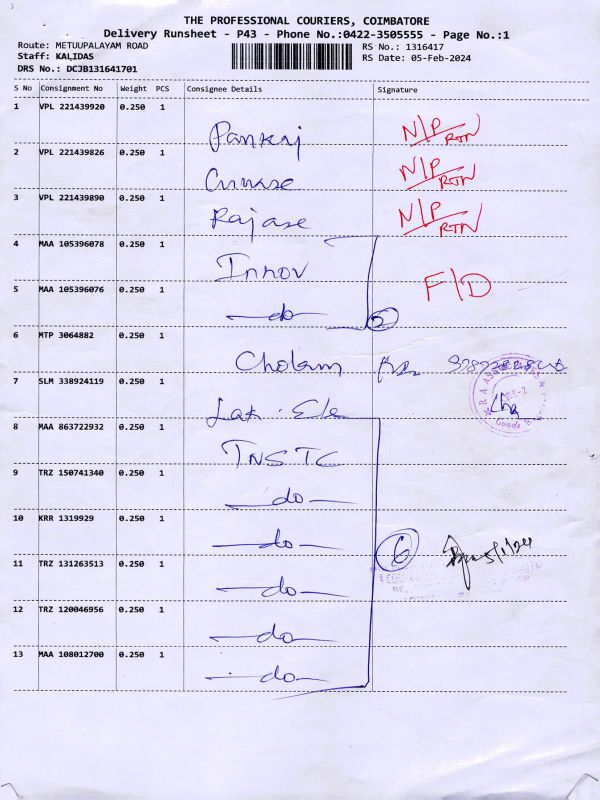 THE PROFESSIONAL COURIERS, COIMBATORE
Delivery Runsheet - P43 - Phone No.:0422-3505555 - Page No.:1
Route: METUUPALAYAM ROAD
RS No.: 1316417
Staff: KALIDAS
RS Date: 05-Feb-2024
DRS No.: DCJB131641701
S No Consignment No Weight PCS Consignee Details Signature
1 VPL 221439920 0.250 1 Pankaj N/P RTN
2 VPL 221439826 0.250 1 N/P RTN
3 VPL 221439890 0.250 1 Rajase N/P RTN
4 MAA 105396078 0.250 1 Innov
5 MAA 105396076 0.250 1 —do— F/D
6 MTP 3064882 0.250 1 Cholam
7 SLM 338924119 0.250 1 Lak. Ele
8 MAA 863722932 0.250 1 TNSTC
9 TRZ 150741340 0.250 1 —do—
10 KRR 1319929 0.250 1 —do— 6
11 TRZ 131263513 0.250 1 —do—
12 TRZ 120046956 0.250 1 —do—
13 MAA 108012700 0.250 1 —do—